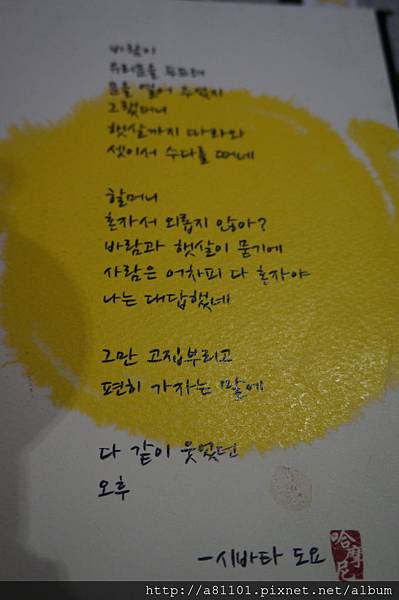 바람이
유리문을 두드려
문을 열어 주었지
그랬더니
햇살까지 따라와
셋이서 수다를 떠네
할머니
혼자서 외롭지 않아?
바람과 햇살이 묻기에
사람은 어차피 다 혼자야
나는 대답했네
그만 고집부리고
편히 가자는 말에
다 같이 웃었던
오후
-시바타 도요
哈摩尼
http://a81101.pixnet.net/album